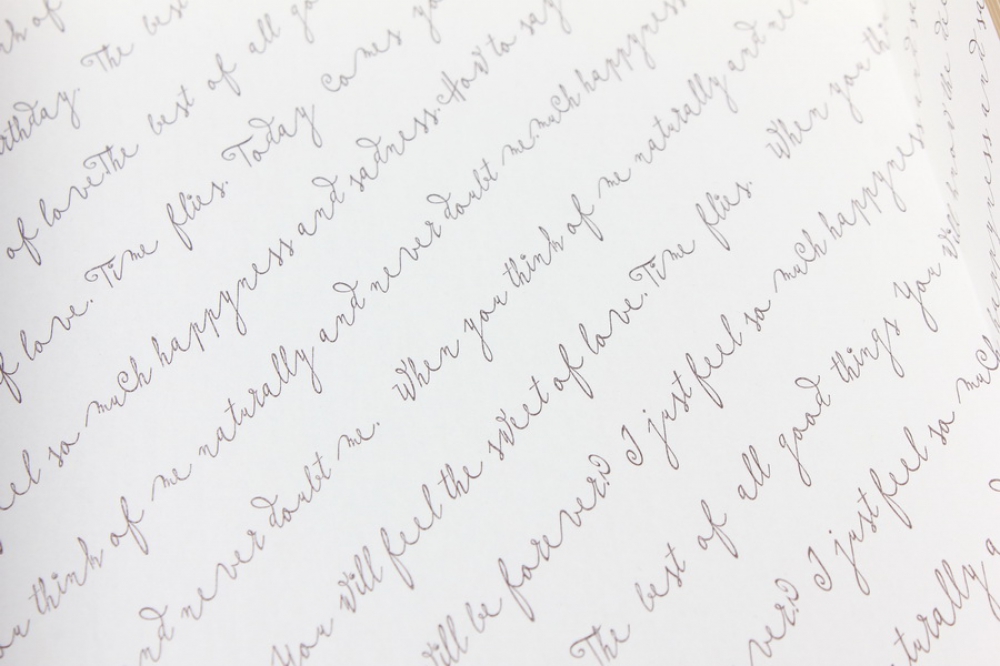 The best
rthday. The best of all go
of loveThe best of all
of love. Time flies. Today comes
feel so much happyness and sadness. How to say
think of me naturally and never doubt me much happyness
and never doubt me. When you think of me naturally and
You will feel the sweet of love. Time flies. When you
will be forever? I just feel so much happyness
The best of all good things You will know the
ver? I just feel so much
turally